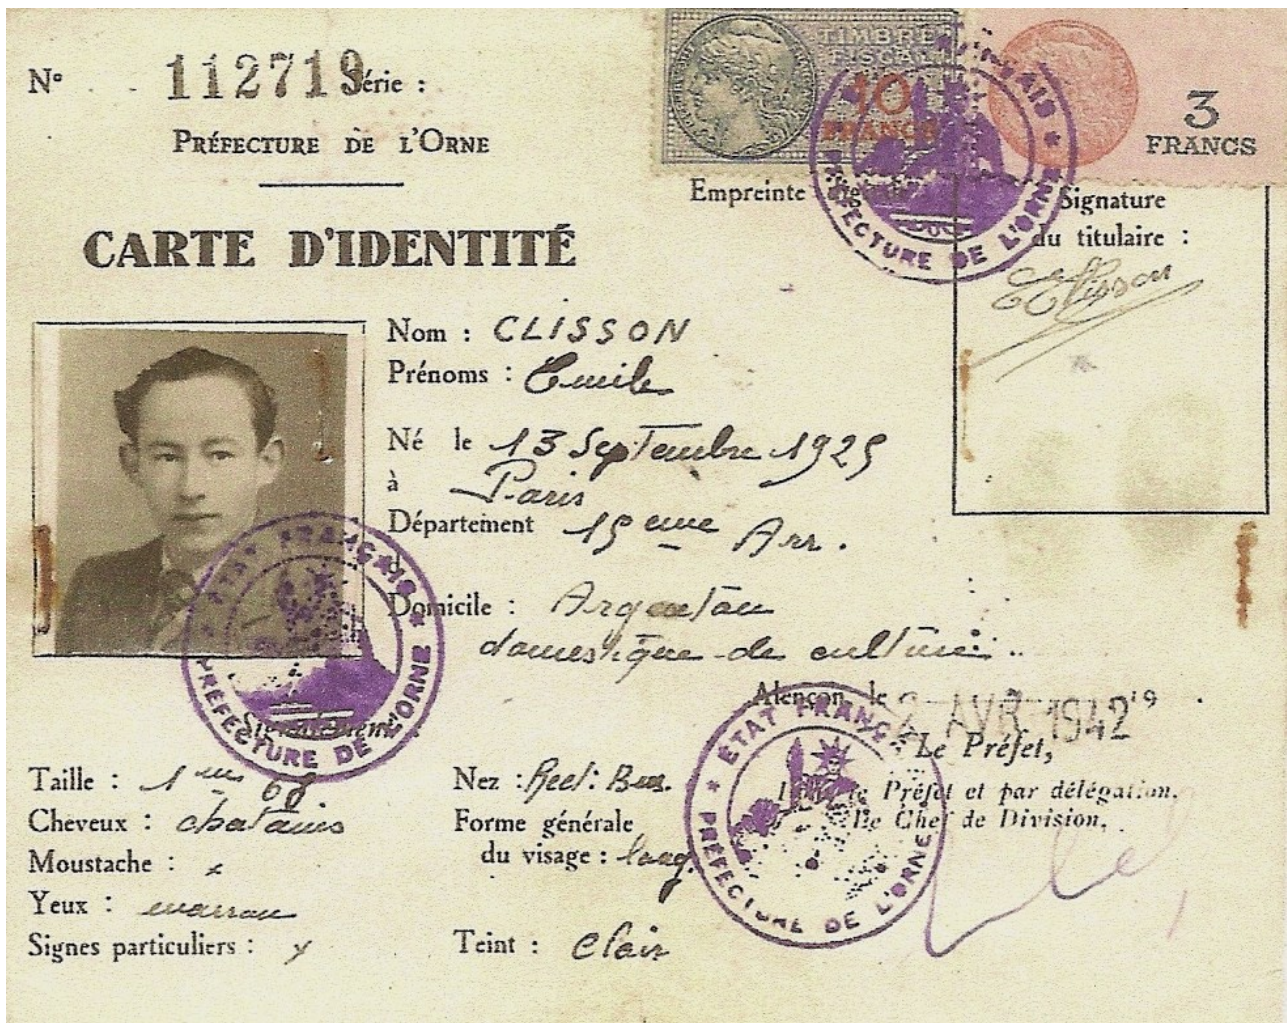 N° 112719 Série :
PRÉFECTURE DE L'ORNE
CARTE D'IDENTITÉ
TIMBRE
FISCAL
10
FRANCS
3
FRANCS
PRÉFECTURE DE L'ORNE
Empreinte
Signature
du titulaire :
EClisson
Nom : CLISSON
Prénoms : Emile
Né le 13 Septembre 1925
à Paris
Département 15 eme Arr.
Domicile : Argentan
domestique de culture
ÉTAT FRANÇAIS
PRÉFECTURE DE L'ORNE
Signalement
Alençon, le 2 AVR 1942 19
Le Préfet,
Préfet et par délégation.
Le Chef de Division,
ÉTAT FRANÇAIS
PRÉFECTURE DE L'ORNE
Taille : 1 m 68
Cheveux : chatains
Moustache : x
Yeux : marron
Signes particuliers : x
Nez : Rect : Bas.
Forme générale
du visage : long
Teint : Clair